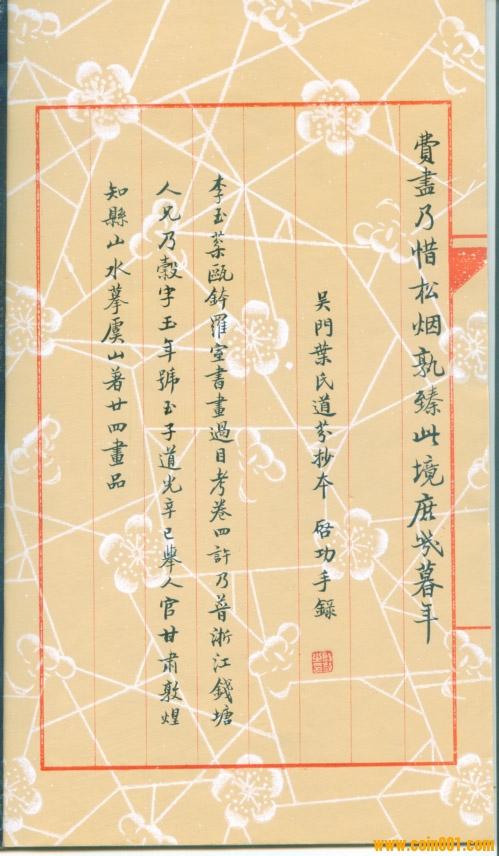 費盡乃惜松烟孰臻此境庶幾暮年
吳門葉氏道芬抄本 啓功手錄
李玉棻甌鉢羅室書畫過目考卷四許乃普浙江錢塘
人兄乃穀字玉年號玉子道光辛巳舉人官甘肅敦煌
知縣山水摹虞山著廿四畫品
www.coin001.com